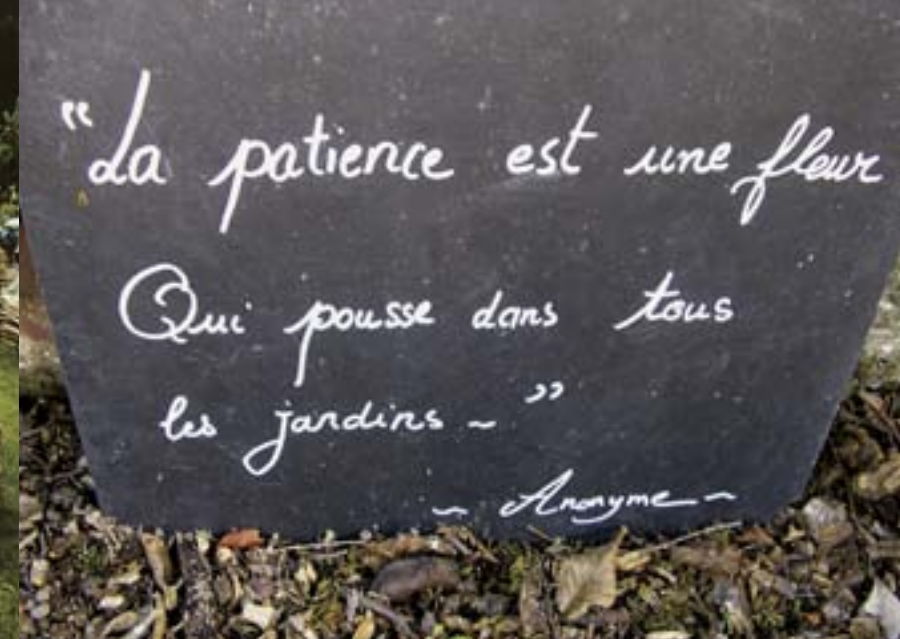 "La patience est une fleur
Qui pousse dans tous
les jardins ~ "
~ Anonyme ~